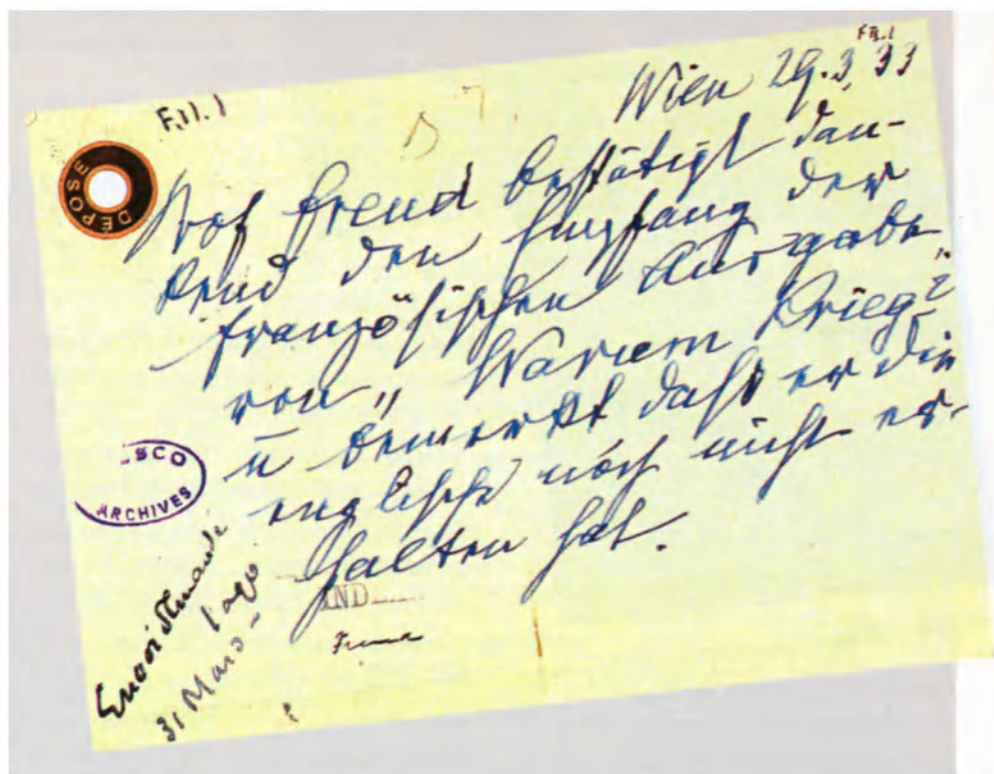 FR.1
F.11.1
Wien 29.3.33
DÉPOSÉ
Prof Freud bestätigt dan-
kend den Empfang der
französischen Ausgabe
von „Warum Krieg?"
u bemerkt daß er die
englische noch nicht er-
halten hat.
SCO
ARCHIVES
31 Mars
IND